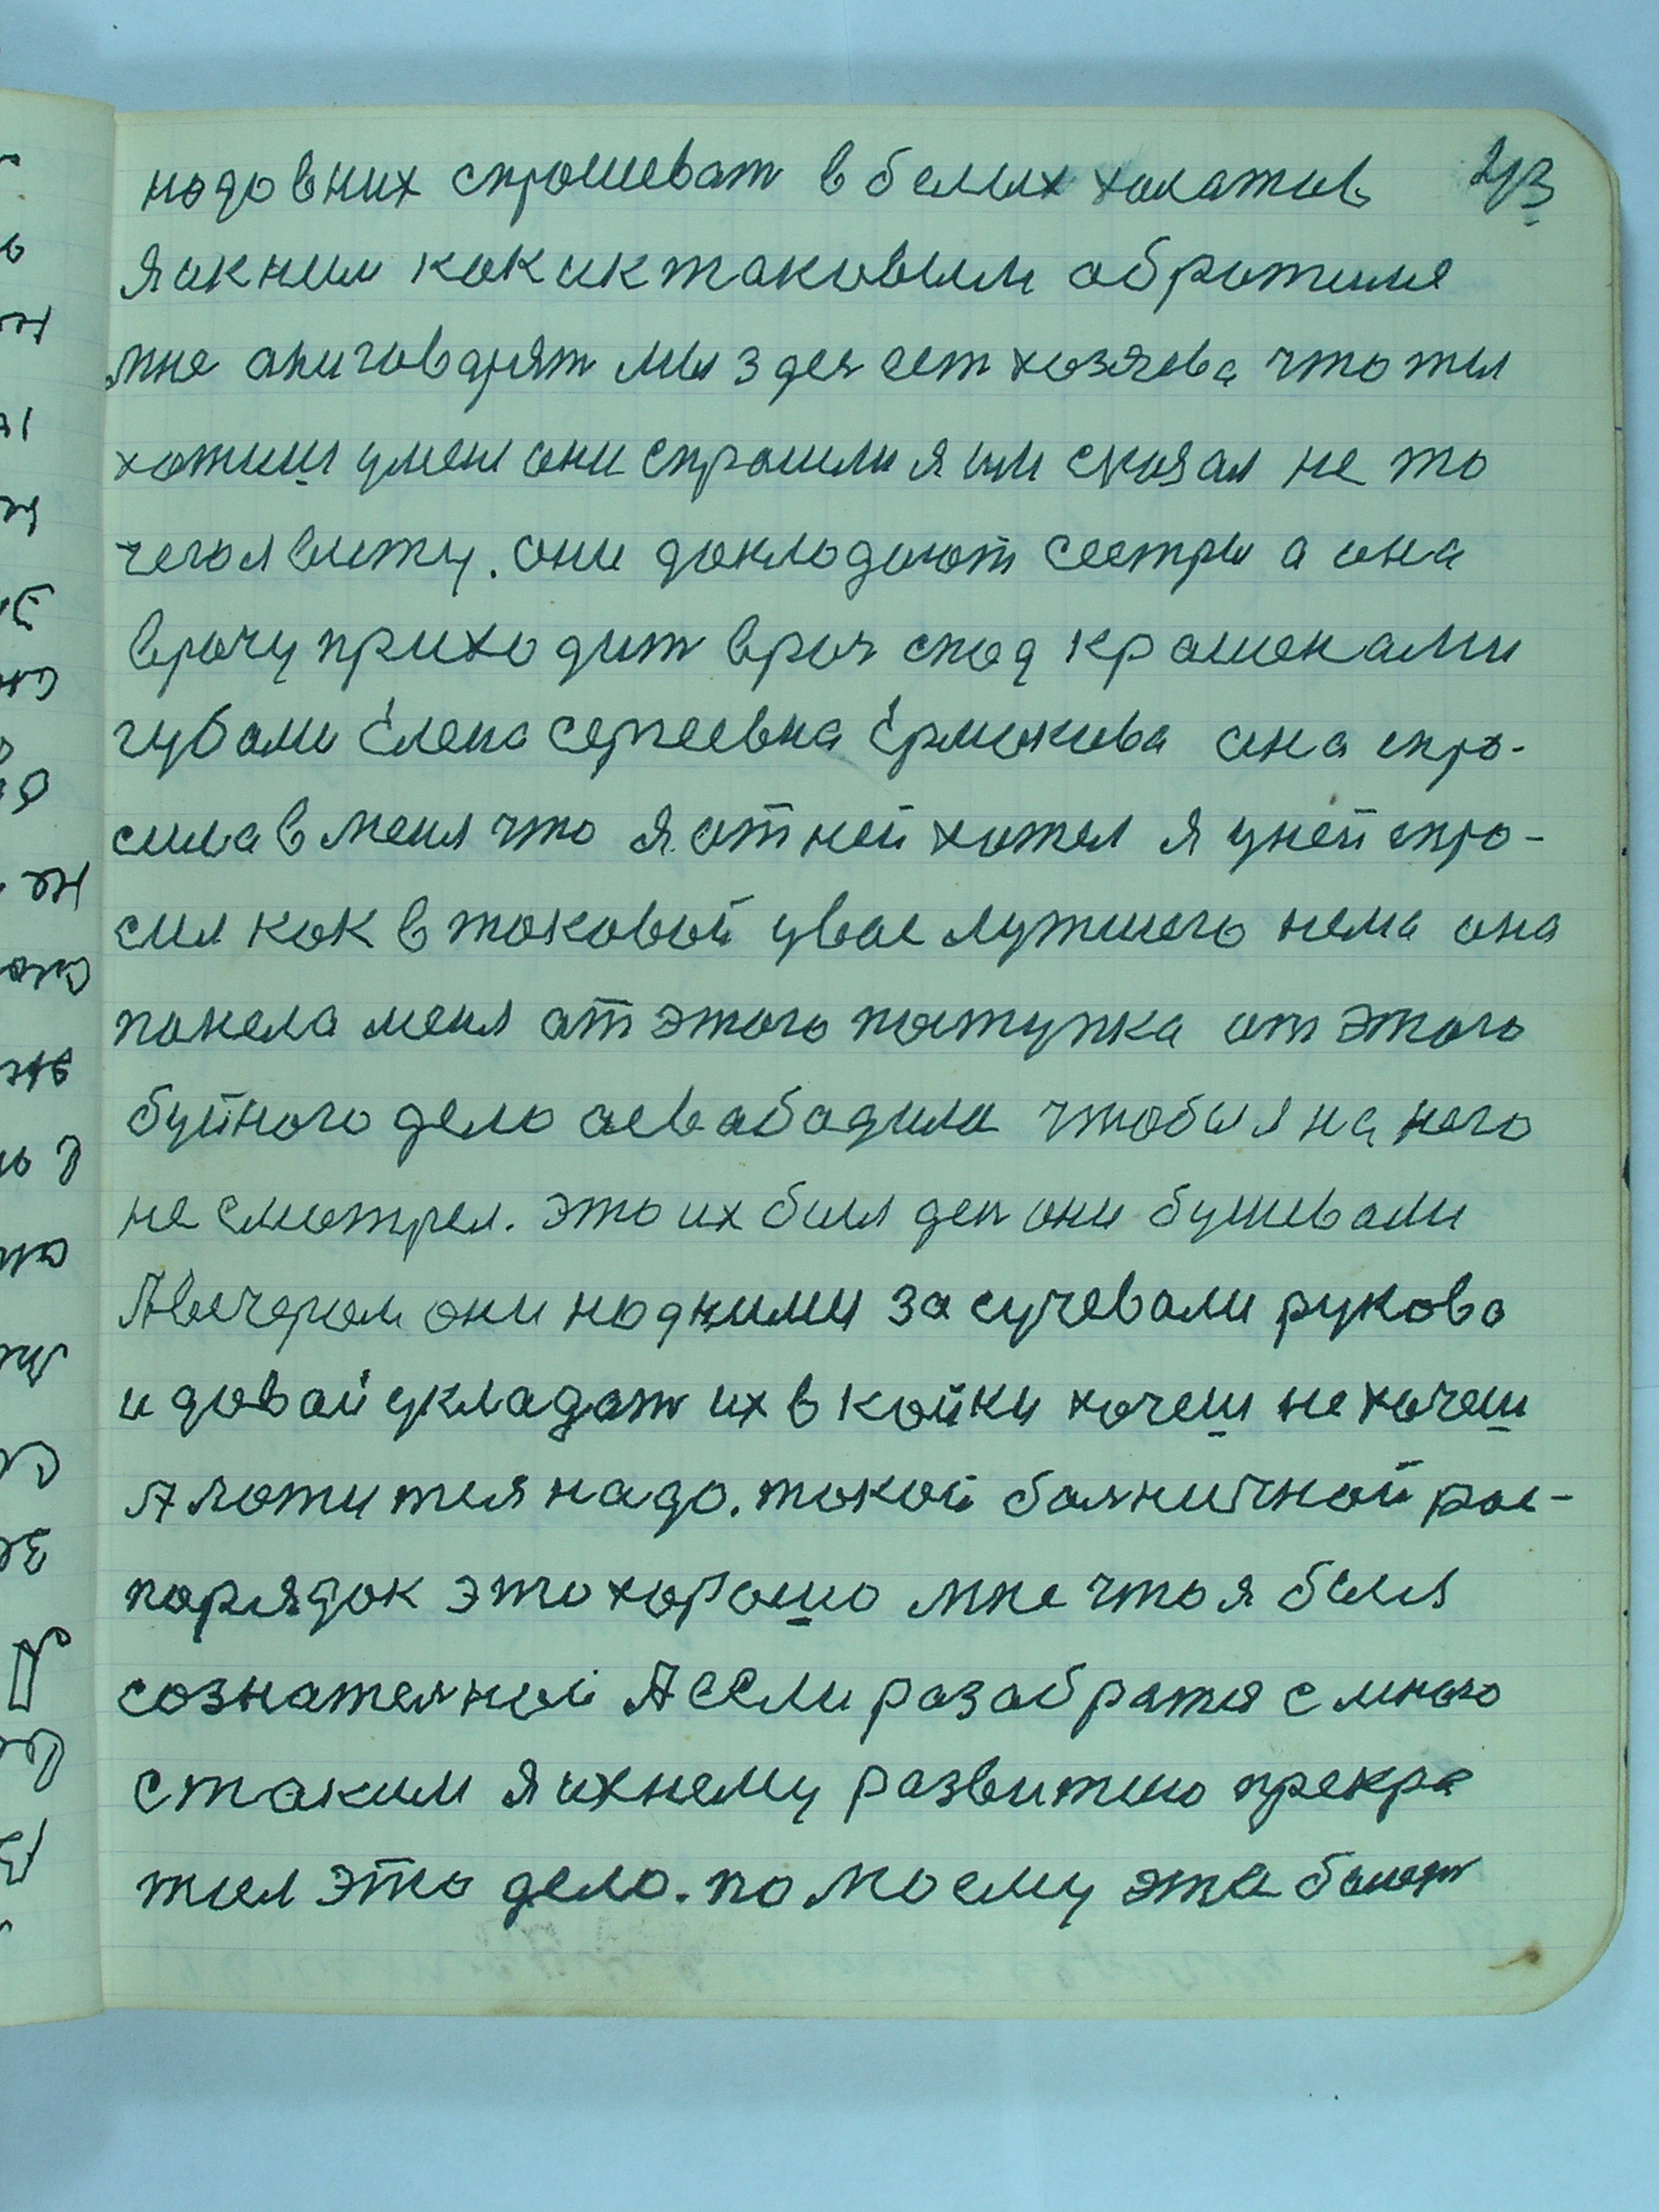 надо вних спрошеват в белых халатов 43
я ик ним как и к таковым обротился
мне они говорят мы здея сет хозяева что ты
хотиш уменя они спросили я им сказал не то
чегоя вижу. они докладоют сестры а она
врачу приходит врач спод крашенами
губами Елена Сергеевна Ермокова она спро-
сила в меня что я от ней хотел я уней спро-
сил как в таковой увас лутшего нема она
понела меня от этого поступка от этого
буйного дело асвабадила чтобы я на него
не смотрел. это их был ден они бушевали
А вечером они над ними засучевали рукова
и довай укладат их в койки хочеш не хочеш
А ложится надо. такой болничной рас-
порядок это хорошо мне что я был
сознателной А если разабратся с мною
с таким я ихнему развитию прекра
тил это дело. по моему эта